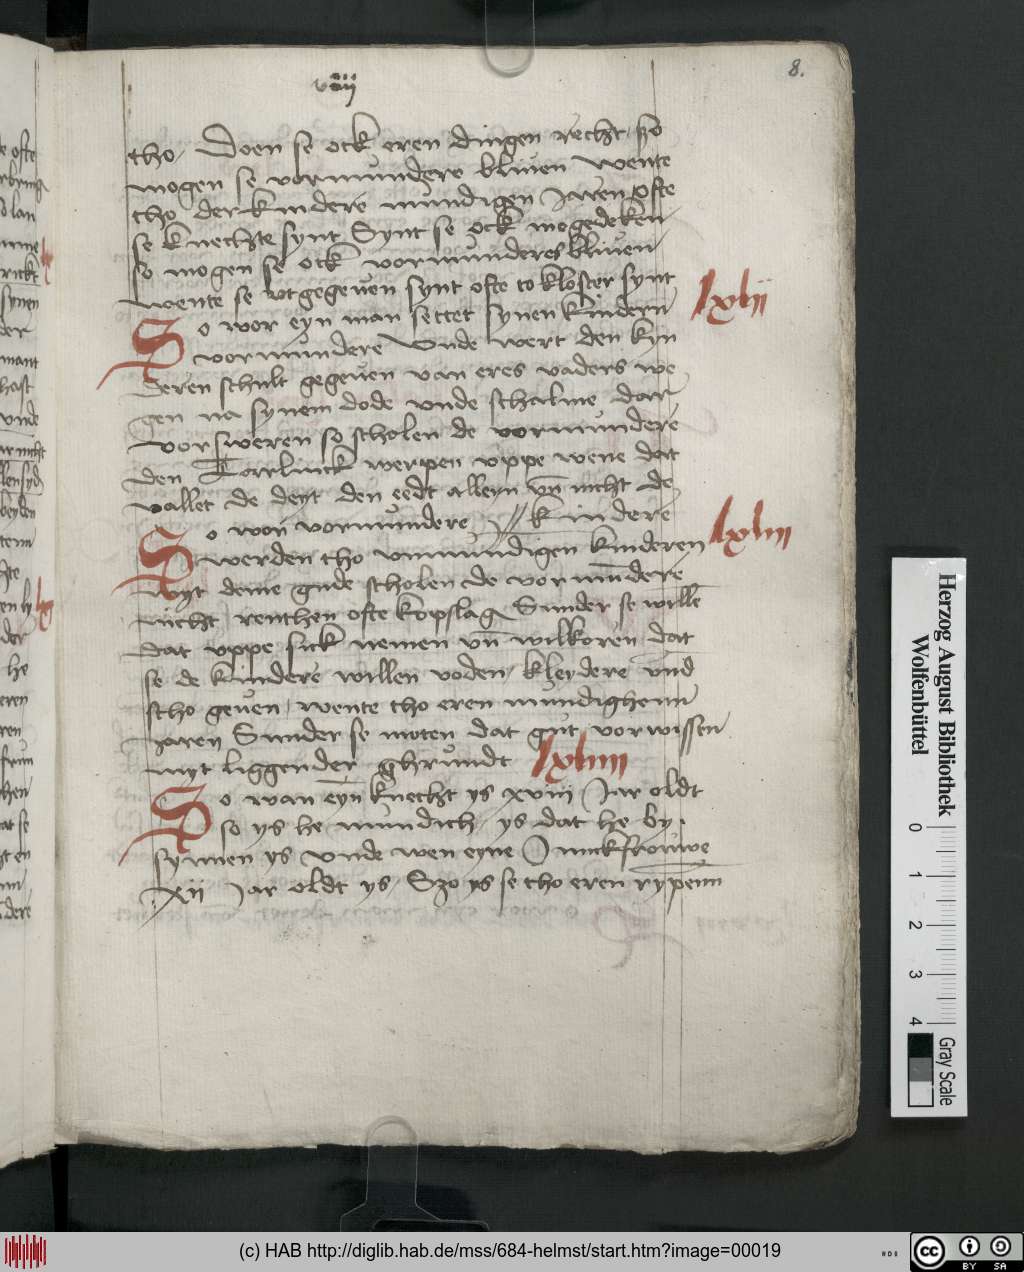 8.
viii
tho Doen se ock eren dingen recht szo
mogen se vormundere bliuen wente
tho der kindere mundigen Jaren ofte
se knechte synt Synt se ock mogedeken
so mogen se ock vormunderes bliuen
wente se vtgegeuen synt ofte to kloster synt
lxlii
So wor eyn man settet synen kindern
vormundere Vnde wert den kyn
deren schult gegeuen van eres vaders we
gen na synem dode vnde schalme dar
vor sweren so scholen de vormundere
den werpen vppe wene dat
vallet de deyt den eedt alleyn vn nicht de
kindere
So wor vormundere
lxliii
werden tho vnmundigen kinderen
myt deme gude scholen de vormundere
nicht renthen ofte kopslag Sunder se wille
dat vppe sick nemen vn wilkoren dat
se de kindere willen voden kleydere vnd
scho geuen wente tho eren mundighenn
Jaren Sunder se moten dat gut vorwissen
myt liggender ghrundt
lxliiii
So wan eyn knecht ys xviii Jar oldt
so ys he mundich ys dat he by
synnen ys vnde wen eyne Junckfrouwe
xii Jar oldt ys Szo ys se tho eren rypenn
Herzog August Bibliothek
Wolfenbüttel
0 1 2 3 4
Gray Scale
(c) HAB http://diglib.hab.de/mss/684-helmst/start.htm?image=00019
cc BY SA